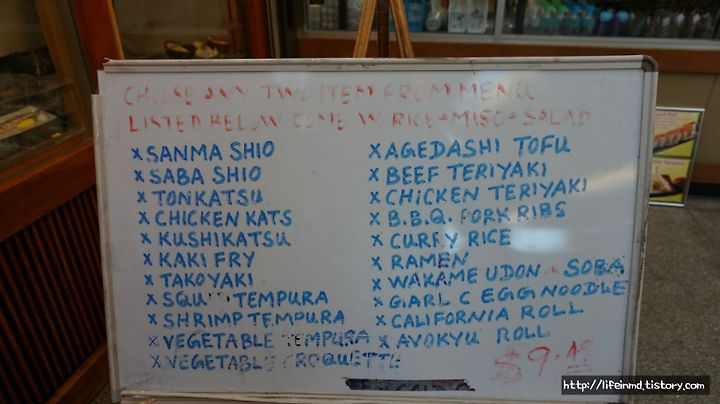 CHOOSE ANY TWO ITEM FROM MENU
LISTED BELOW COME W/ RICE + MISO + SALAD
x SANMA SHIO
x SABA SHIO
x TONKATSU
x CHICKEN KATS
x KUSHIKATSU
x KAKI FRY
x TAKOYAKI
x SQU TEMPURA
x SHRIMP TEMPURA
x VEGETABLE TEMPURA
x VEGETABLE CROQUETTE
x AGEDASHI TOFU
x BEEF TERIYAKI
x CHICKEN TERIYAKI
x B.B.Q. PORK RIBS
x CURRY RICE
x RAMEN
x WAKAME UDON x SOBA
x GARL C EGG NOODLE
x CALIFORNIA ROLL
x AVOKYU ROLL
http://lifeinmd.tistory.com